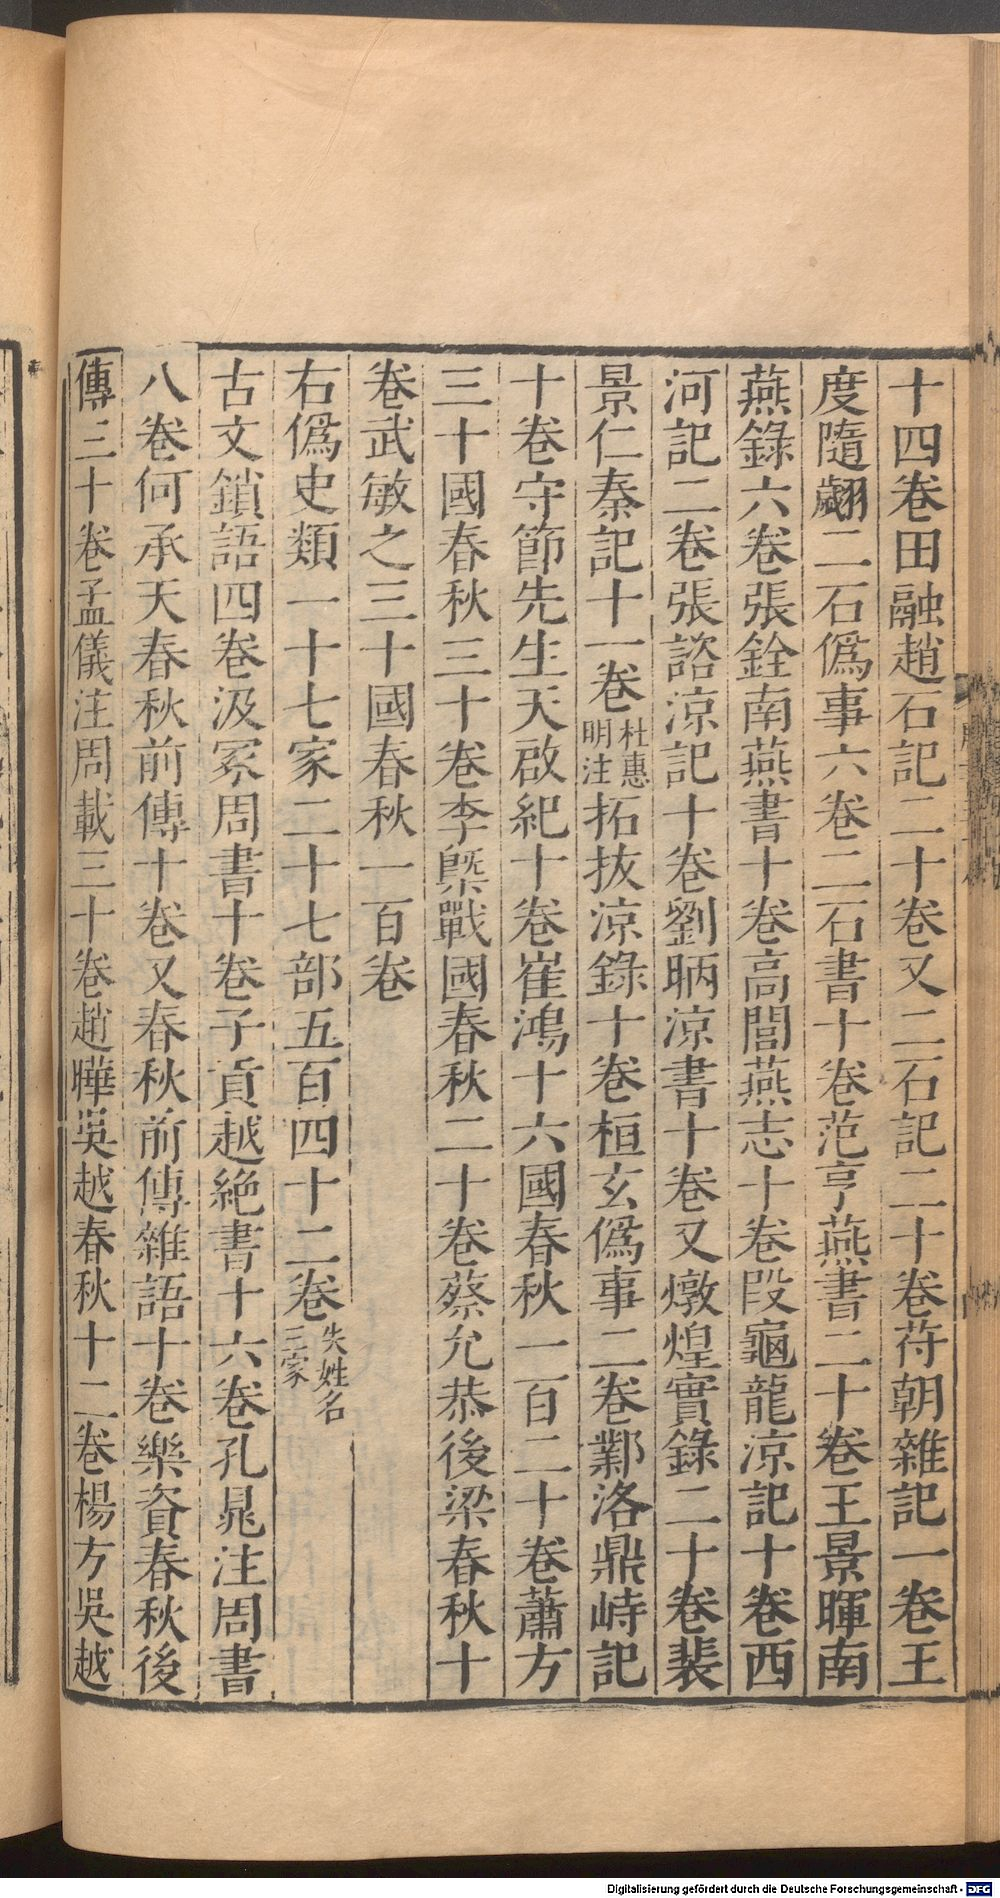 十四卷田融趙石記二十卷又二石記二十卷苻朝雜記一卷王
度隨翽二石僞事六卷二石書十卷范亨燕書二十卷王景暉南
燕錄六卷張銓南燕書十卷高閭燕志十卷段龜龍涼記十卷西
河記二卷張諮涼記十卷劉昞涼書十卷又燉煌實錄二十卷裴
景仁秦記十一卷杜惠明注拓拔涼錄十卷桓玄僞事二卷鄴洛鼎峙記
十卷守節先生天啟紀十卷崔鴻十六國春秋一百二十卷蕭方
三十國春秋三十卷李槩戰國春秋二十卷蔡允恭後梁春秋十
卷武敏之三十國春秋一百卷
右僞史類一十七家二十七部五百四十二卷失姓名三家
古文鎖語四卷汲冢周書十卷子貢越絶書十六卷孔晁注周書
八卷何承天春秋前傳十卷又春秋前傳雜語十卷樂資春秋後
傳三十卷孟儀注周載三十卷趙曄吳越春秋十二卷楊方吳越
Digitalisierung gefördert durch die Deutsche Forschungsgemeinschaft - DFG